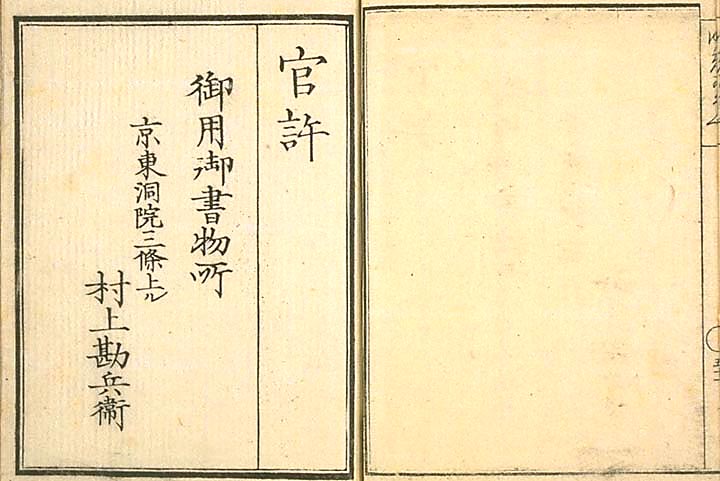 官許
御用御書物所
京東洞院三條上ル
村上勘兵衞